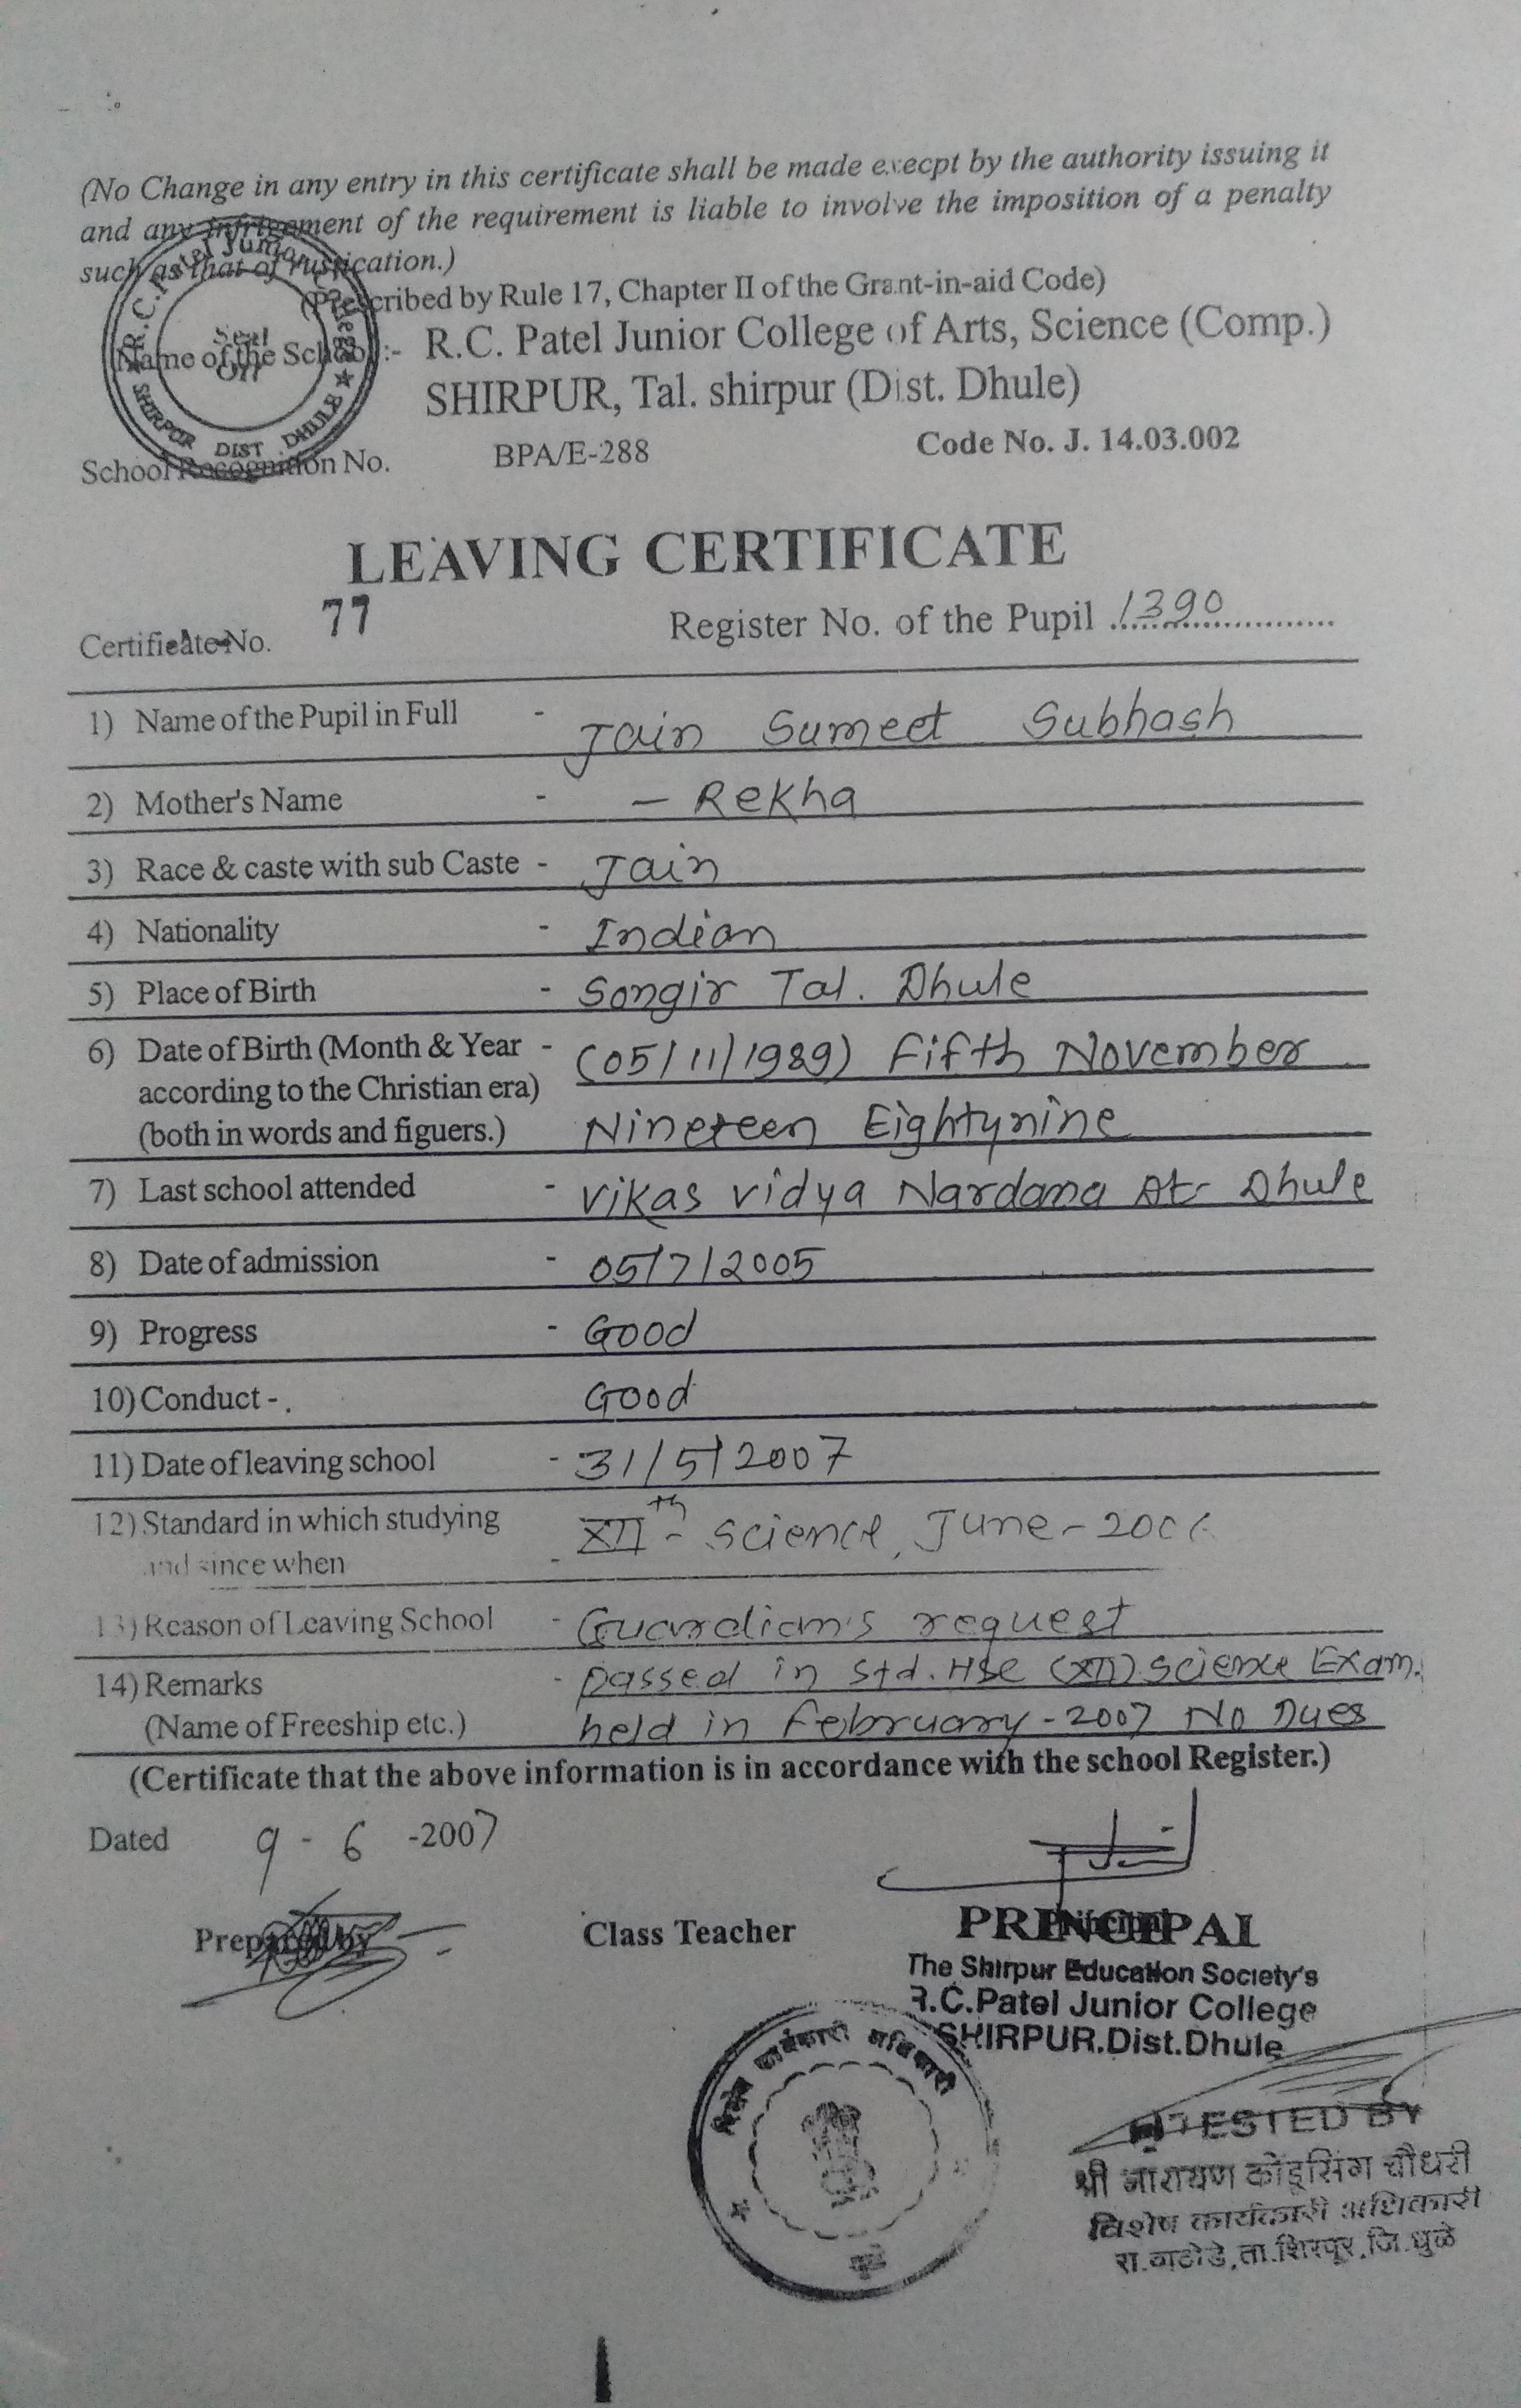 (No Change in any entry in this certificate shall be made execpt by the authority issuing it
and any infrigement of the requirement is liable to involve the imposition of a penalty
such as that of rustication.)
(Prescribed by Rule 17, Chapter II of the Grant-in-aid Code)
R.C. Patel Junior College
SHIRPUR DIST DHULE
Seal
Name of the School :- R.C. Patel Junior College of Arts, Science (Comp.)
SHIRPUR, Tal. shirpur (Dist. Dhule)
School Recognition No. BPA/E-288 Code No. J. 14.03.002
LEAVING CERTIFICATE
Certificate No. 77 Register No. of the Pupil 1390
1) Name of the Pupil in Full - Jain Sumeet Subhash
2) Mother's Name - – Rekha
3) Race & caste with sub Caste - Jain
4) Nationality - Indian
5) Place of Birth - Songir Tal. Dhule
6) Date of Birth (Month & Year - (05/11/1989) Fifth November
according to the Christian era)
(both in words and figuers.) Nineteen Eightynine
7) Last school attended - Vikas vidya Nardana Dt- Dhule
8) Date of admission - 05/7/2005
9) Progress - Good
10) Conduct - . Good
11) Date of leaving school - 31/5/2007
12) Standard in which studying XIIth - Science, June-
and since when -
13) Reason of Leaving School - Guardian's request
14) Remarks - passed in std. HSC (XII) Science Exam.
(Name of Freeship etc.) held in February-2007 No Dues
(Certificate that the above information is in accordance with the school Register.)
Dated 9 - 6 -2007
Prepared by Class Teacher Principal
PRINCIPAL
The Shirpur Education Society's
R.C.Patel Junior College
SHIRPUR.Dist.Dhule
विशेष कार्यकारी अधिकारी
ATTESTED BY
श्री नारायण कोडूसिंग चौधरी
विशेष कार्यकारी अधिकारी
रा.वाठोडे,ता.शिरपूर,जि.धुळे